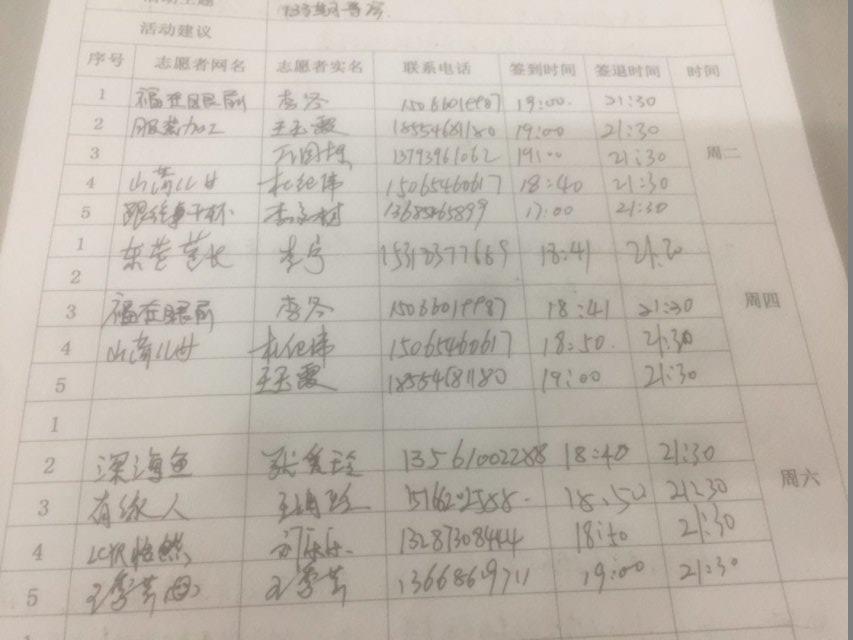 活动主题
活动建议
序号 志愿者网名 志愿者实名 联系电话 签到时间 签退时间 时间
1 福在眼前 李冬 15066019987 19:00 21:30
2 服装加工 王玉霞 18554681180 19:00 21:30
3 13793961062 19:00 21:30 周二
4 山荷儿女 杜纪伟 15065460617 18:40 21:30
5 13685465899 17:00 21:30
1 李宁 15312377669 18:41 21:30
2
3 福在眼前 李冬 15066019987 18:41 21:30 周四
4 杜纪伟 15065460617 18:50 21:30
5 王玉霞 18554681180 19:00 21:30
1
2 深海鱼 张爱玲 13561002288 18:40 21:30
3 有缘人 18:50 21:30 周六
4 13287308444 18:50 21:30
5 王秀芳 13668619711 19:00 21:30